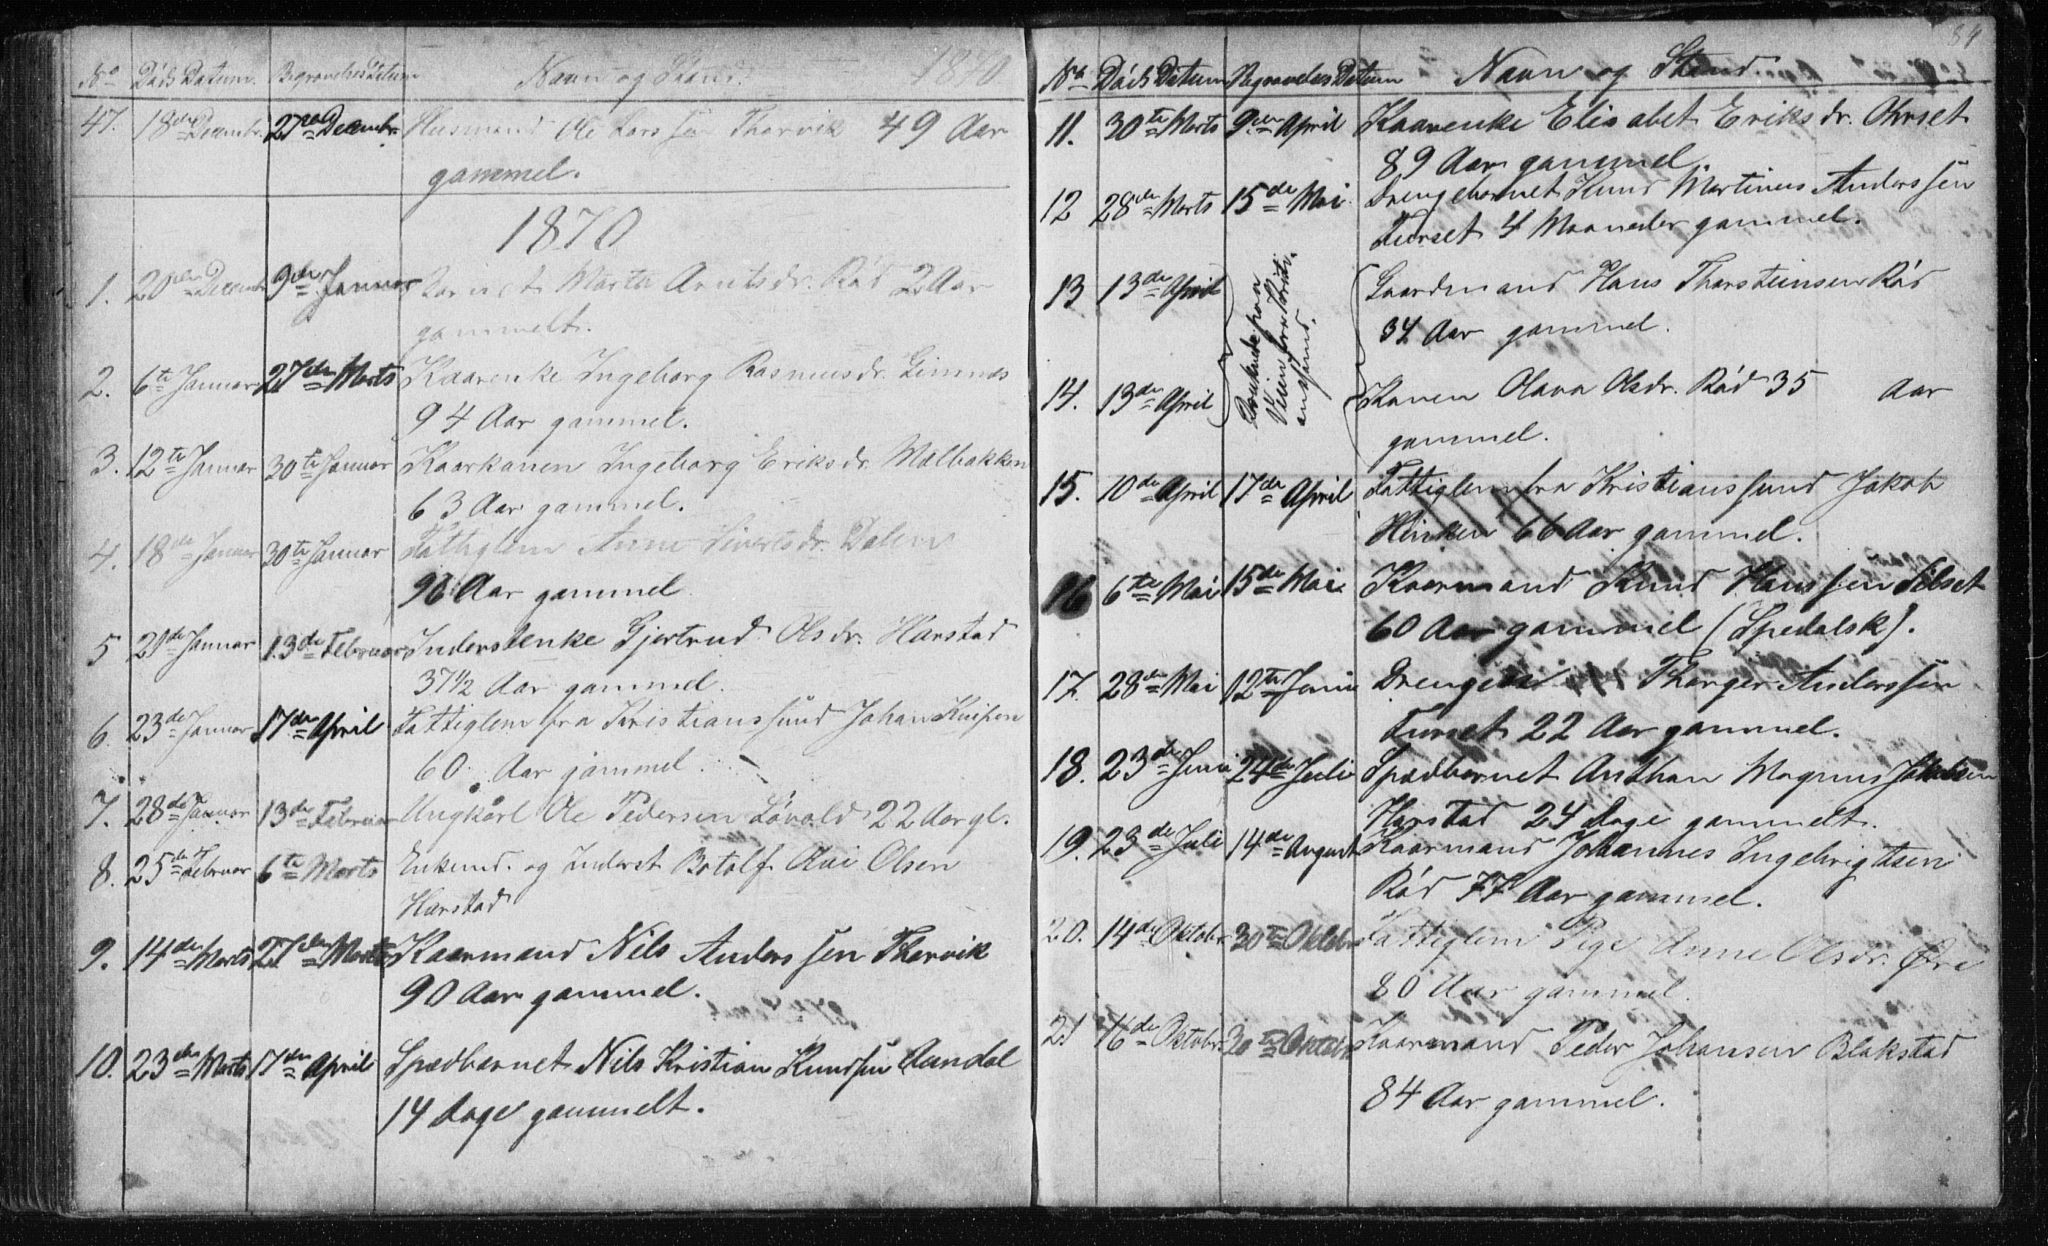 No Döds Datum. Begravelses Datum Navn og Stand. 1870
47. 18de Decembr. 27de Decembr. Husmand Ole Lars sen Thorvik 49 Aar
gammel.
1870
1. 20de Decembr 9de Januar Barnet Marta Arntsdr. Röd 2 Aar
gammelt.
2. 6te Januar 27de Marts Kaarenke Ingeborg Rasmusdr. Gimnæs
94 Aar gammel.
3. 12te Januar 30te Januar Kaarkonen Ingeborg Eriksdr. Molbakken
63 Aar gammel.
4. 18de Januar 30te Januar Fattiglem Anne Sivertsdr. Dalen
Aar gammel
5 21de Januar 13de Februar Inderstenke Gjertrud Olsdr. Harstad
37 1/2 Aar gammel.
6. 23de Januar 17de April Fattiglem fra Kristianssund Johan
60 Aar gammel.
7. 28de Januar 13de Februar Ungkarl Ole Pedersen Lövold 22 Aar gl.
8. 25de Februar 6te Marts Enkemd. og Inderst Botolf Olsen
Harstad
9. 14de Marts 27de Marts Kaarmand Nils Anders sen Thorvik
90 Aar gammel.
10. 23de Marts 17de April Spædbarnet Nils Kristian Knudsen Aandal
14 dage gammelt.
84
No Döds Datum Begravelses Datum Navn og Stand.
11. 30te Marts 9de April Kaarenke Elisabet Eriksdr. Orset
89 Aar gammel.
12 28de Marts 15de Mai. Drengebarnet Knud Martinus Anders sen
Furset 4 Maaneder gammel.
13 13de April Gaardmand Hans Thorsteinsen Röd
34 Aar gammel.
Druknede paa
Veien fra Kristi-
anssund.
14. 13de April Konen Olava Olsdr. Röd 35 Aar
gammel.
15. 10de April 17de April Fattiglem fra Kristianssund Jakob
66 Aar gammel.
16 6te Mai 15de Mai. Kaarmand Knud Hans sen Silset
60 Aar gammel (Spedalsk).
17. 28de Mai 12te Juni Thorger Anders sen
Furset 22 Aar gammel.
18. 23de Juni 24de Juli Spædbarnet Anthon Magnus Jakobsen
Harstad 24 dage gammelt.
19. 23de Juli 14de August Kaarmand Johannes Ingebrigtsen
Röd 77 Aar gammel.
20. 14de Oktobr. 30te Oktobr Fattiglem Pige Anne Olsdr. Øre
80 Aar gammel.
21 16de Oktobr. 30te Oktobr Kaarmand Peder Johansen Blakstad
84 Aar gammel.